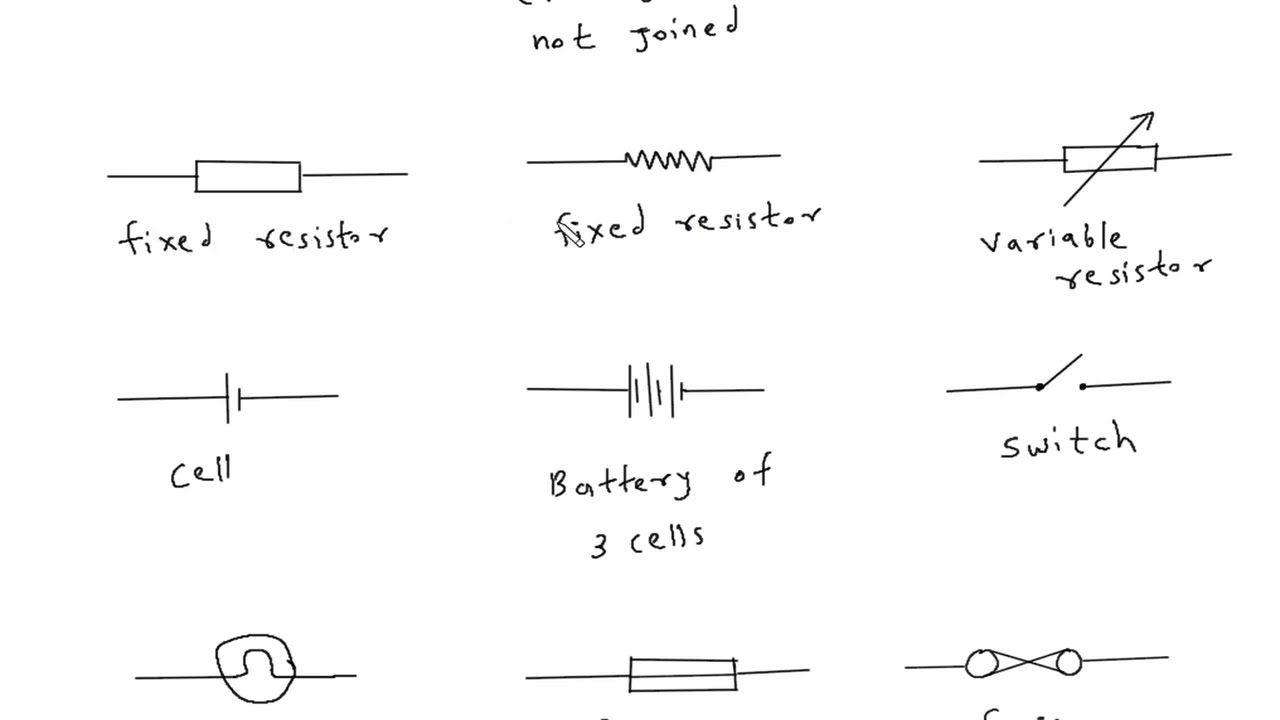 not joined
fixed resistor
fixed resistor
variable
resistor
cell
Battery of
3 cells
switch